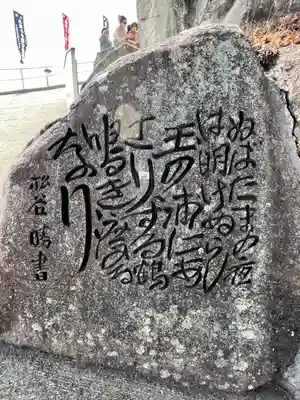 ぬばたまの夜
は明けぬらし
玉の浦にあ
さりする鶴
鳴き渡る
なり
松谷 晴書